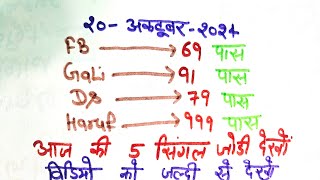 २०- अक्टूबर-२०२४
FB → 69 पास
Gali → 91 पास
DS → 79 पास
Haruf → 999 पास
आज की 5 सिंगल जोड़ी देखों
विडियो को जल्दी से देखो